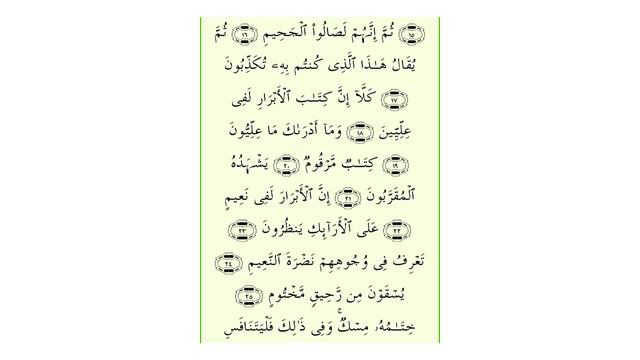 ۝١٥ ثُمَّ إِنَّهُمْ لَصَالُوا۟ ٱلْجَحِيمِ ۝١٦ ثُمَّ
يُقَالُ هَـٰذَا ٱلَّذِى كُنتُم بِهِۦ تُكَذِّبُونَ
۝١٧ كَلَّآ إِنَّ كِتَـٰبَ ٱلْأَبْرَارِ لَفِى
عِلِّيِّينَ ۝١٨ وَمَآ أَدْرَىٰكَ مَا عِلِّيُّونَ
۝١٩ كِتَـٰبٌ مَّرْقُومٌ ۝٢٠ يَشْهَدُهُ
ٱلْمُقَرَّبُونَ ۝٢١ إِنَّ ٱلْأَبْرَارَ لَفِى نَعِيمٍ
۝٢٢ عَلَى ٱلْأَرَآئِكِ يَنظُرُونَ ۝٢٣
تَعْرِفُ فِى وُجُوهِهِمْ نَضْرَةَ ٱلنَّعِيمِ ۝٢٤
يُسْقَوْنَ مِن رَّحِيقٍ مَّخْتُومٍ ۝٢٥
خِتَـٰمُهُۥ مِسْكٌ ۚ وَفِى ذَٰلِكَ فَلْيَتَنَافَسِ